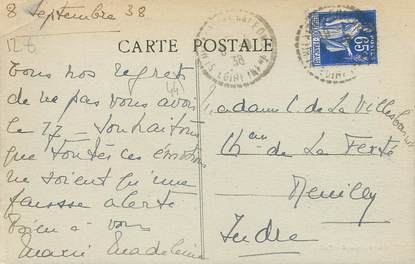 8 Septembre 38
CARTE POSTALE
65
38
LOIRE INF
Tous nos regrets
de ne pas vous avoir
le 17 - Souhaitons
que toutes ces émotions
ne soient qu'une
fausse alerte
Bien à vous
Marie Madeleine
Madame C. de La Villesboisnet
Chau de La Ferté
Reuilly
Indre